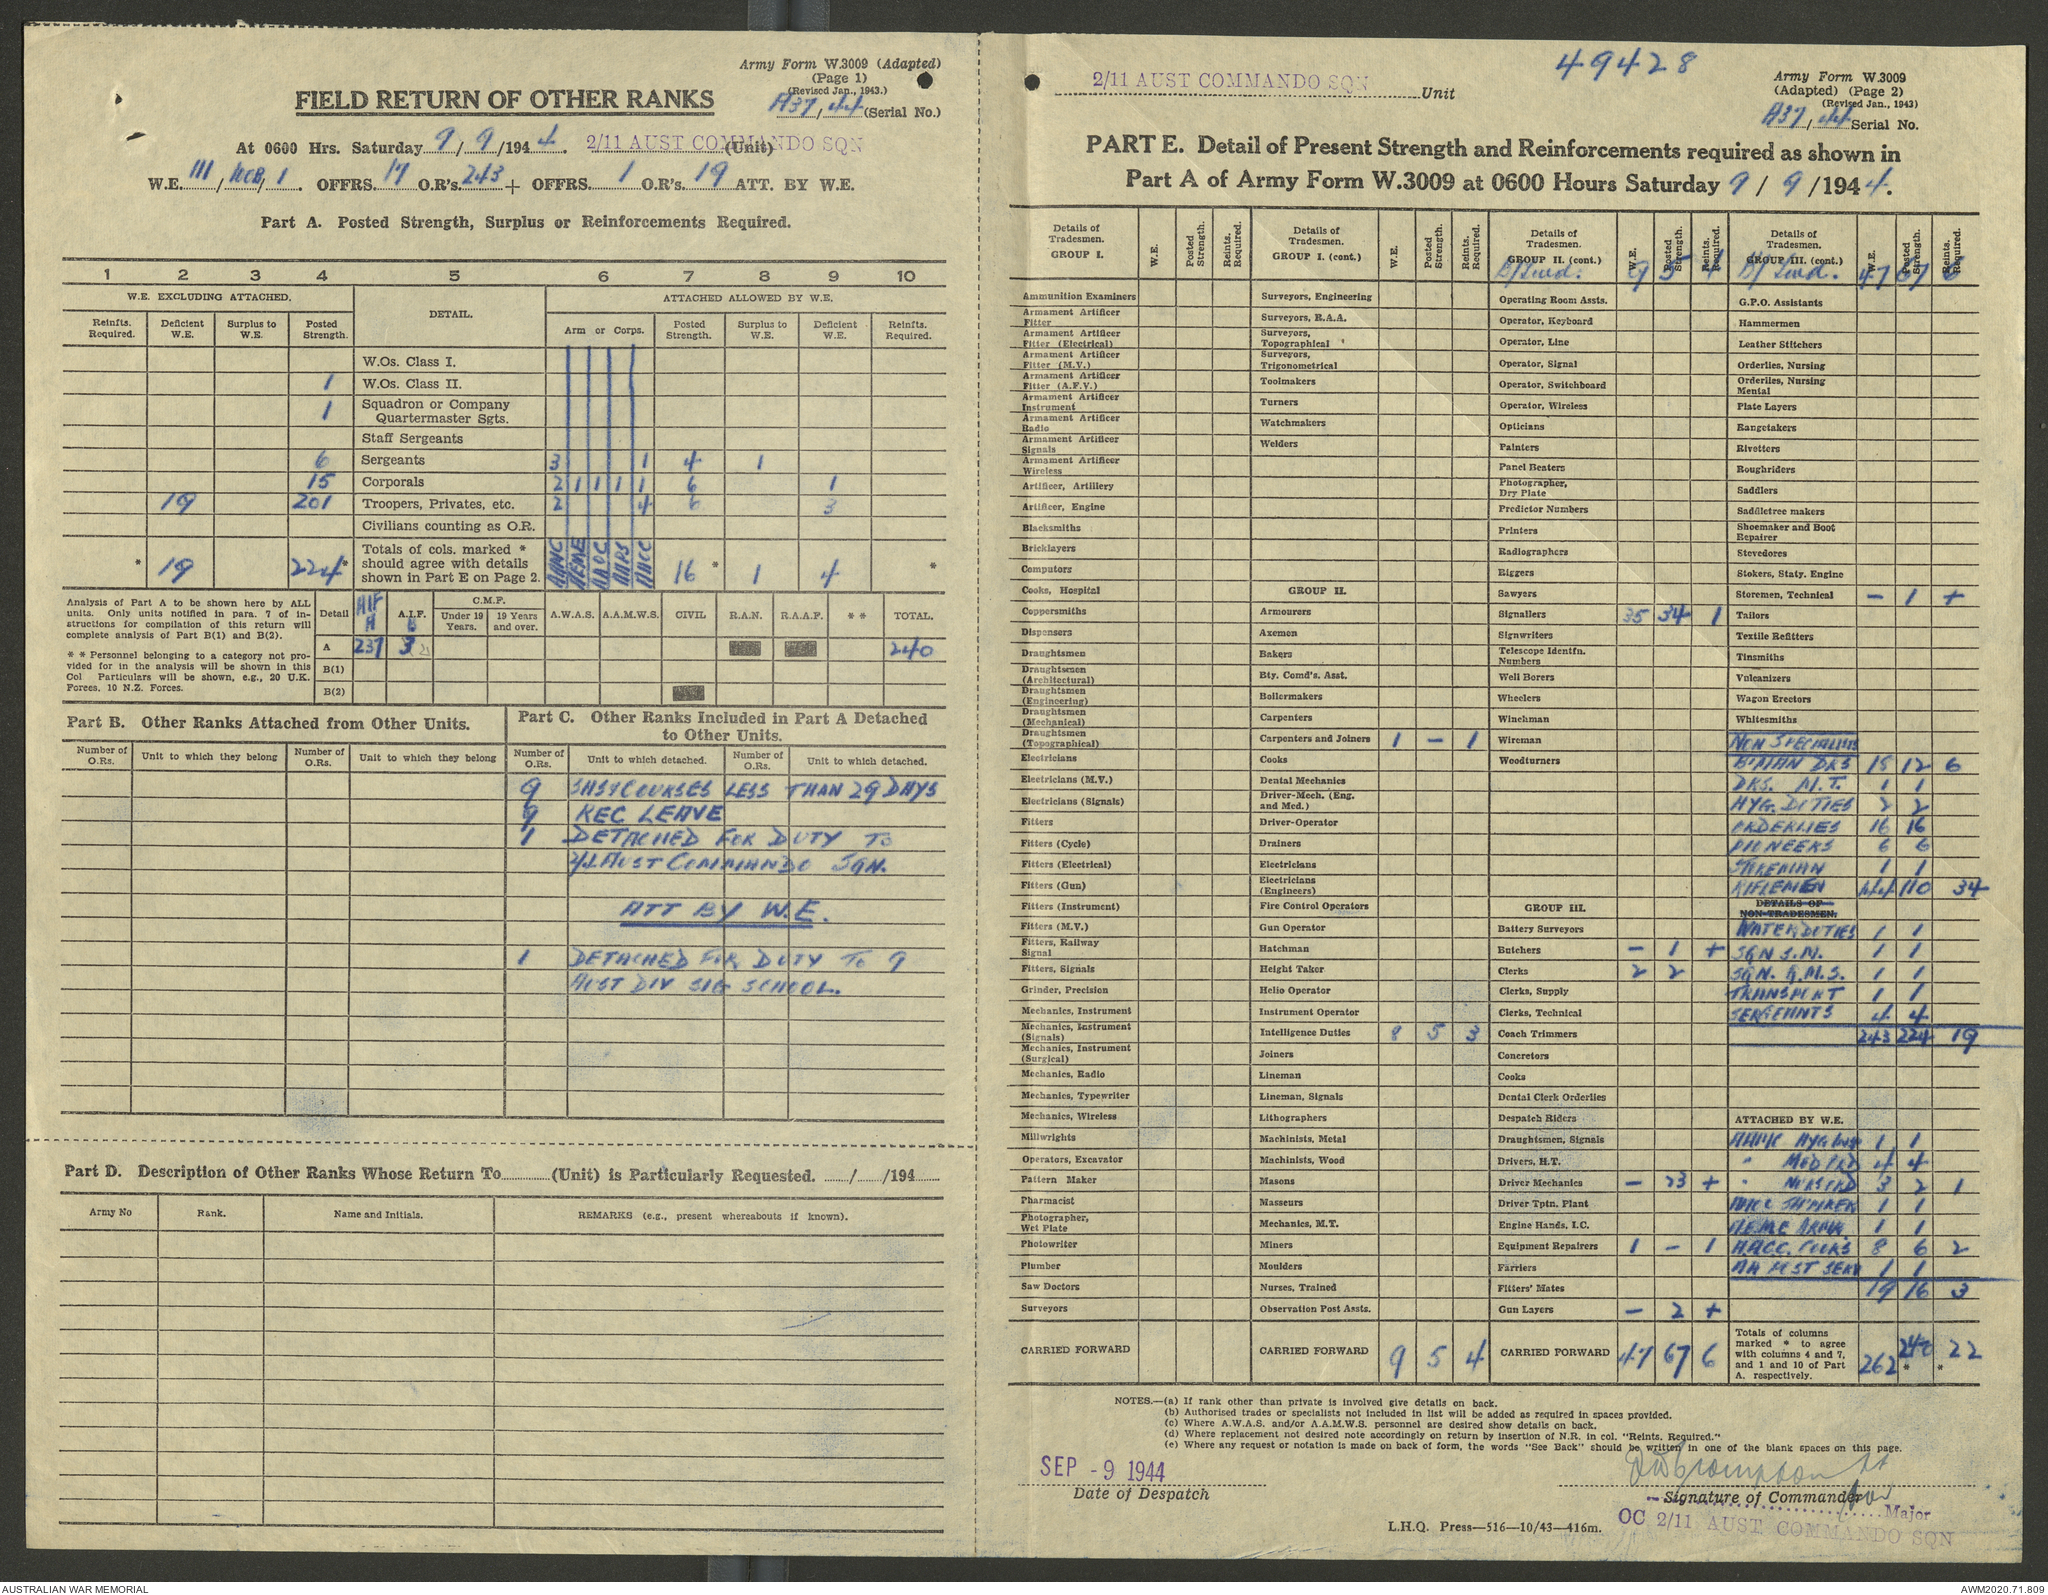 Army Form W.3009 (Adapted)
(Page 1)
(Revised Jan., 1943.)
FIELD RETURN OF OTHER RANKS
A37/44 (Serial No.)
At 0600 Hrs. Saturday 9/9/1944. 2/11 AUST COMMANDO SQN (Unit)
W.E. III/10CB/1. OFFRS. 17 O.R's. 243 + OFFRS. 1 O.R's. 19 ATT. BY W.E.
Part A. Posted Strength, Surplus or Reinforcements Required.
1 2 3 4 5 6 7 8 9 10
W.E. EXCLUDING ATTACHED. DETAIL. ATTACHED ALLOWED BY W.E.
Reinfts. Required. Deficient W.E. Surplus to W.E. Posted Strength. Arm or Corps. Posted Strength. Surplus to W.E. Deficient W.E. Reinfts. Required.
W.Os. Class I.
1 W.Os. Class II.
1 Squadron or Company Quartermaster Sgts.
Staff Sergeants
6 Sergeants 3 1 4 1
15 Corporals 2 1 1 1 1 6 1
19 201 Troopers, Privates, etc. 2 4 6 3
Civilians counting as O.R.
* 19 224* Totals of cols. marked * should agree with details shown in Part E on Page 2. AAMC AEME AAOC AAPS AACC 16 * 1 4 *
Analysis of Part A to be shown here by ALL units. Only units notified in para. 7 of instructions for compilation of this return will complete analysis of Part B(1) and B(2).
* * Personnel belonging to a category not provided for in the analysis will be shown in this Col Particulars will be shown, e.g., 20 U.K. Forces, 10 N.Z. Forces.
Detail AIF A A.I.F. B C.M.F. Under 19 Years. 19 Years and over. A.W.A.S. A.A.M.W.S. CIVIL R.A.N. R.A.A.F. * * TOTAL.
A 237 3 240
B(1)
B(2)
Part B. Other Ranks Attached from Other Units.
Number of O.Rs. Unit to which they belong Number of O.Rs. Unit to which they belong
Part C. Other Ranks Included in Part A Detached to Other Units.
Number of O.Rs. Unit to which detached. Number of O.Rs. Unit to which detached.
9 COURSES LESS THAN 29 DAYS
9 REC LEAVE
1 DETACHED FOR DUTY TO
AUST COMMANDO SQN.
ATT BY W.E.
1 DETACHED FOR DUTY TO 9
AUST DIV SIG SCHOOL.
Part D. Description of Other Ranks Whose Return To (Unit) is Particularly Requested. / /194
Army No Rank. Name and Initials. REMARKS (e.g., present whereabouts if known).
49428
2/11 AUST COMMANDO SQN Unit
Army Form W.3009
(Adapted) (Page 2)
(Revised Jan., 1943)
A37/44 Serial No.
PART E. Detail of Present Strength and Reinforcements required as shown in
Part A of Army Form W.3009 at 0600 Hours Saturday 9/9/1944.
Details of Tradesmen. GROUP I. W.E. Posted Strength. Reints. Required.
Ammunition Examiners
Armament Artificer Fitter
Armament Artificer Fitter (Electrical)
Armament Artificer Fitter (M.V.)
Armament Artificer Fitter (A.F.V.)
Armament Artificer Instrument
Armament Artificer Radio
Armament Artificer Signals
Armament Artificer Wireless
Artificer, Artillery
Artificer, Engine
Blacksmiths
Bricklayers
Computors
Cooks, Hospital
Coppersmiths
Dispensers
Draughtsmen
Draughtsmen (Architectural)
Draughtsmen (Engineering)
Draughtsmen (Mechanical)
Draughtsmen (Topographical)
Electricians
Electricians (M.V.)
Electricians (Signals)
Fitters
Fitters (Cycle)
Fitters (Electrical)
Fitters (Gun)
Fitters (Instrument)
Fitters (M.V.)
Fitters, Railway Signal
Fitters, Signals
Grinder, Precision
Mechanics, Instrument
Mechanics, Instrument (Signals)
Mechanics, Instrument (Surgical)
Mechanics, Radio
Mechanics, Typewriter
Mechanics, Wireless
Millwrights
Operators, Excavator
Pattern Maker
Pharmacist
Photographer, Wet Plate
Photowriter
Plumber
Saw Doctors
Surveyors
CARRIED FORWARD
Details of Tradesmen. GROUP I. (cont.) W.E. Posted Strength. Reints. Required.
Surveyors, Engineering
Surveyors, R.A.A.
Surveyors, Topographical
Surveyors, Trigonometrical
Toolmakers
Turners
Watchmakers
Welders
GROUP II.
Armourers
Axemen
Bakers
Bty. Comd's. Asst.
Boilermakers
Carpenters
Carpenters and Joiners 1 - 1
Cooks
Dental Mechanics
Driver-Mech. (Eng. and Med.)
Driver-Operator
Drainers
Electricians
Electricians (Engineers)
Fire Control Operators
Gun Operator
Hatchman
Height Taker
Helio Operator
Instrument Operator
Intelligence Duties 8 5 3
Joiners
Lineman
Lineman, Signals
Lithographers
Machinists, Metal
Machinists, Wood
Masons
Masseurs
Mechanics, M.T.
Miners
Moulders
Nurses, Trained
Observation Post Assts.
CARRIED FORWARD 9 5 4
Details of Tradesmen. GROUP II. (cont.) W.E. Posted Strength. Reints. Required.
B/Fwd. 9 5 4
Operating Room Assts.
Operator, Keyboard
Operator, Line
Operator, Signal
Operator, Switchboard
Operator, Wireless
Opticians
Painters
Panel Beaters
Photographer, Dry Plate
Predictor Numbers
Printers
Radiographers
Riggers
Sawyers
Signallers 35 34 1
Signwriters
Telescope Identfn. Numbers
Well Borers
Wheelers
Winchman
Wireman
Woodturners
GROUP III.
Battery Surveyors
Butchers - 1 +
Clerks 2 2
Clerks, Supply
Clerks, Technical
Coach Trimmers
Concretors
Cooks
Dental Clerk Orderlies
Despatch Riders
Draughtsmen, Signals
Drivers, H.T.
Driver Mechanics - 23 +
Driver Tptn. Plant
Engine Hands, I.C.
Equipment Repairers 1 - 1
Farriers
Fitters' Mates
Gun Layers - 2 +
CARRIED FORWARD 47 67 6
Details of Tradesmen. GROUP III. (cont.) W.E. Posted Strength. Reints. Required.
B/Fwd. 47 67 6
G.P.O. Assistants
Hammermen
Leather Stitchers
Orderlies, Nursing
Orderlies, Nursing Mental
Plate Layers
Rangetakers
Rivetters
Roughriders
Saddlers
Saddletree makers
Shoemaker and Boot Repairer
Stevedores
Stokers, Staty. Engine
Storemen, Technical - 1 +
Tailors
Textile Refitters
Tinsmiths
Vulcanizers
Wagon Erectors
Whitesmiths
NON SPECIALISTS
B'MAN DRS 18 12 6
DRS. M.T. 1 1
HYG. DUTIES 2 2
ORDERLIES 16 16
PIONEERS 6 6
STOREMAN 1 1
RIFLEMEN 144 110 34
DETAILS OF NON-TRADESMEN.
WATER DUTIES 1 1
SQN S.M. 1 1
SQN. Q.M.S. 1 1
TRANSPORT 1 1
SERGEANTS 4 4
243 224 19
ATTACHED BY W.E.
AAMC HYG 1 1
" MED ORD 4 4
" NURS ORD 3 2 1
1 1
AEME ARMR. 1 1
AACC. COOKS 8 6 2
1 1
19 16 3
Totals of columns marked * to agree with columns 4 and 7, and 1 and 10 of Part A. respectively. 262 240 * * 22
NOTES.—(a) If rank other than private is involved give details on back.
(b) Authorised trades or specialists not included in list will be added as required in spaces provided.
(c) Where A.W.A.S. and/or A.A.M.W.S. personnel are desired show details on back.
(d) Where replacement not desired note accordingly on return by insertion of N.R. in col. "Reints. Required."
(e) Where any request or notation is made on back of form, the words "See Back" should be written in one of the blank spaces on this page.
SEP -9 1944
Date of Despatch
Signature of Commander
for Major
OC 2/11 AUST COMMANDO SQN
L.H.Q. Press—516—10/43—416m.
AUSTRALIAN WAR MEMORIAL
AWM2020.71.809